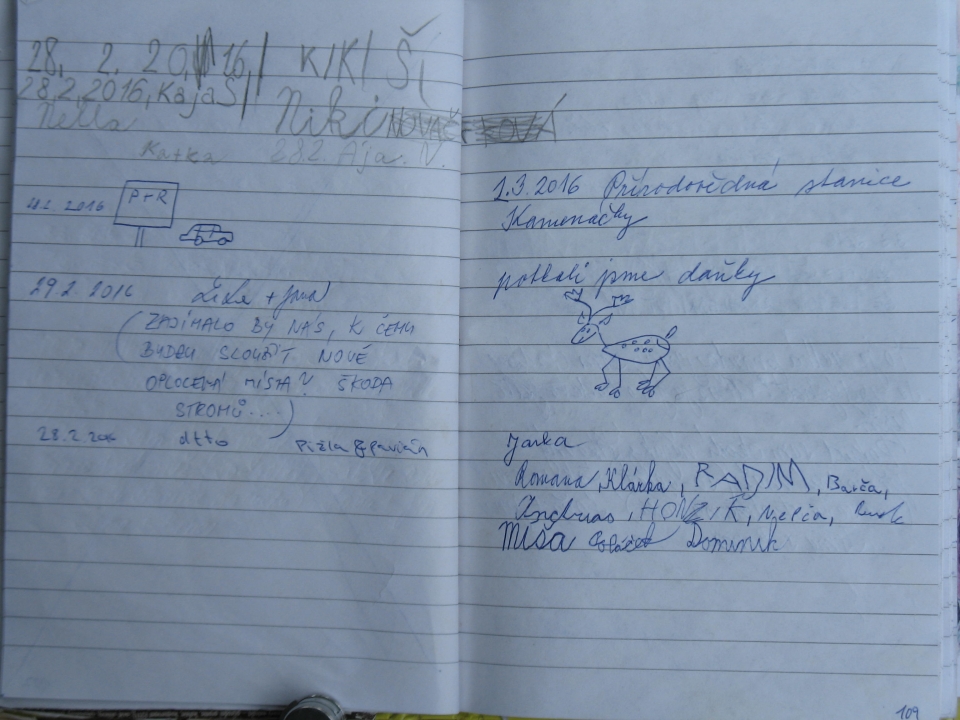 28. 2. 2016, KIKI Š
28.2.2016, Kája Š, Niki NOVÁČKOVÁ
Nella
Katka 28.2. Ája. N.
P+R
2016
29.2.2016 + Jana
(ZAJÍMALO BY NÁS, K ČEMU
BUDOU SLOUŽIT NOVÉ
OPLOCENÁ MÍSTA? ŠKODA
STROMŮ....)
28.2. ditto
1.3.2016 Přírodovědná stanice
Kamenačky
potkali jsme daňky
Jarka
Romana, Klárka, RADIM, Barča,
HONZÍK,
Míša Dominik
109